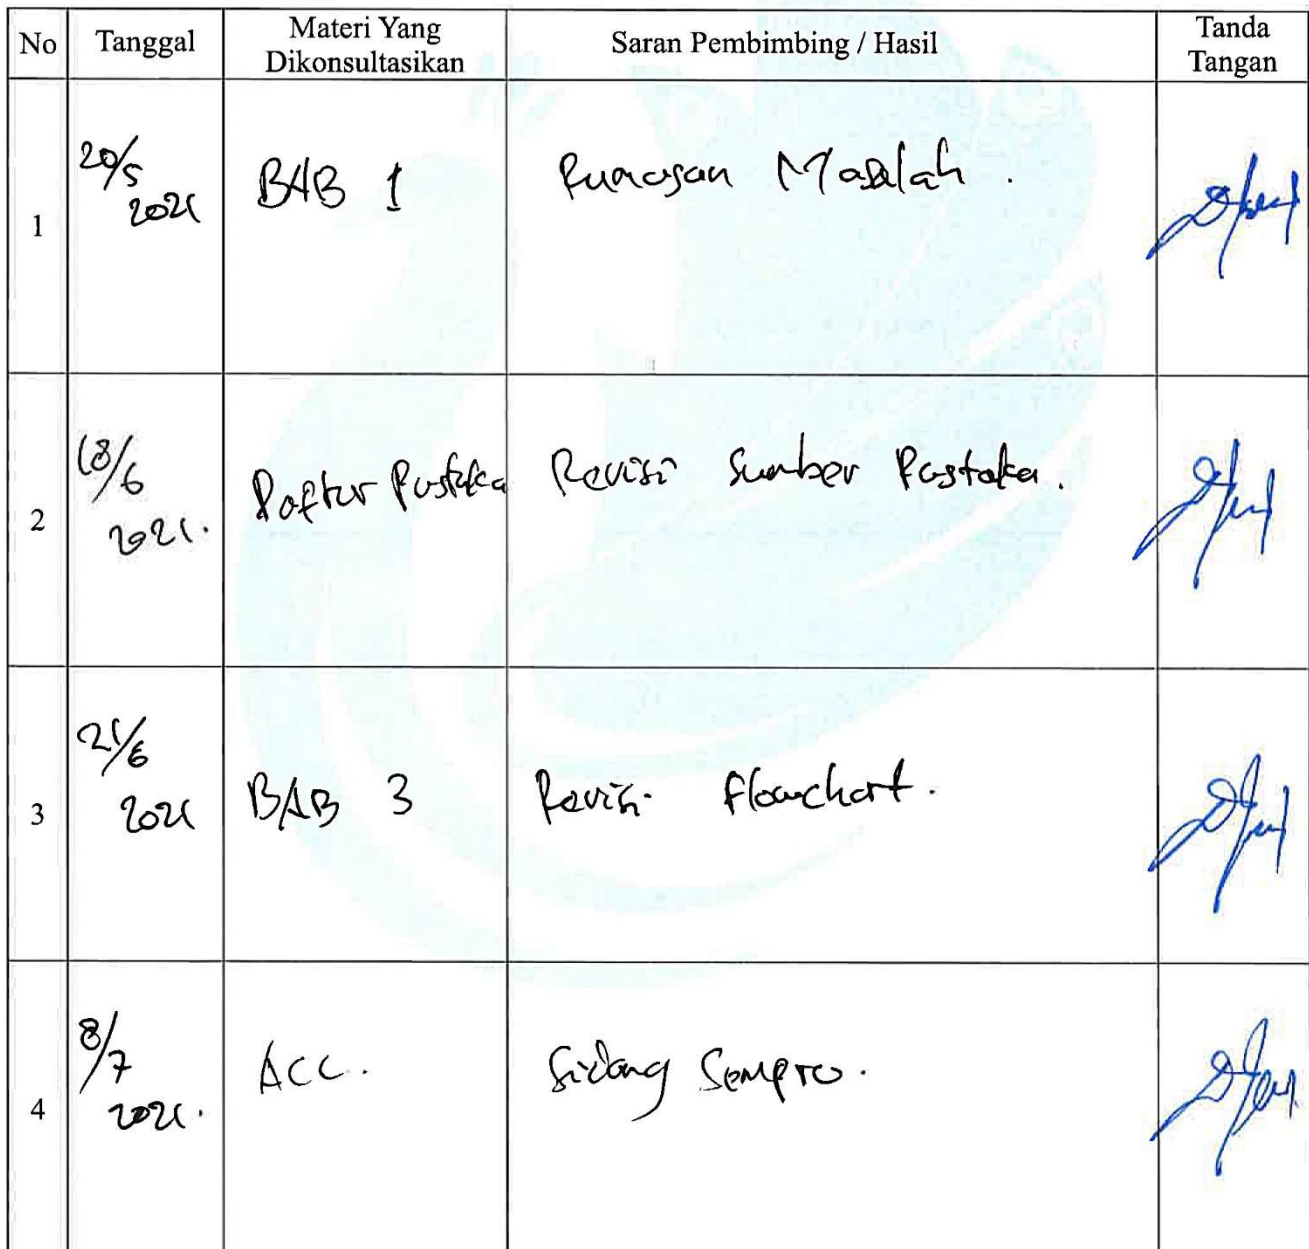 No Tanggal Materi Yang Dikonsultasikan Saran Pembimbing / Hasil Tanda Tangan
1 20/5 2021 BAB 1 Rumusan Masalah.
2 18/6 2021. Daftar Pustaka Revisi Sumber Pustaka.
3 21/6 2021 BAB 3 Revisi Flowchart.
4 8/7 2021. ACC. Sidang Sempro.